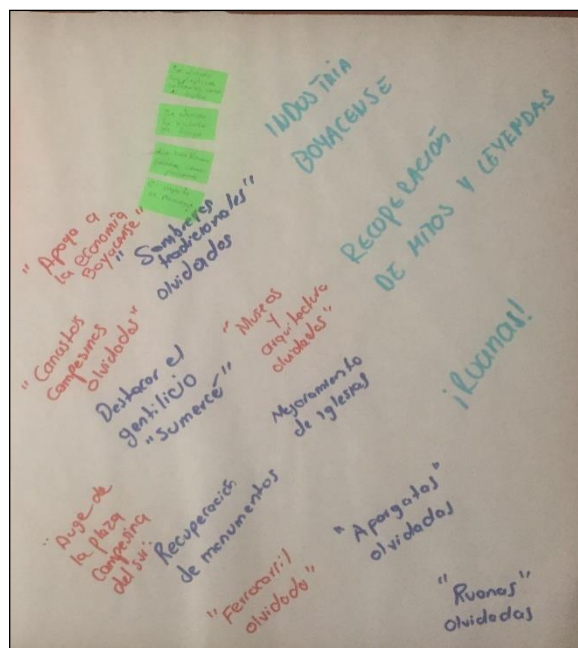 INDUSTRIA
BOYACENSE
RECOPERACIÓN
DE MITOS Y LEYENDAS
"Apoyo a
la economía
Boyacense"
"Sombreros
tradicionales"
olvidados
"Canastos
campesinos
olvidados"
"Museos
y
arquitectura
olvidados"
¡Ruanas!
Destacar el
gentilicio
"sumercé"
Mejoramiento
de iglesias
"Auge de
la plaza
campesina
del sur"
Recuperación
de monumentos
"Alpargatas"
olvidadas
"Ferrocarril
olvidado"
"Ruanas"
olvidadas